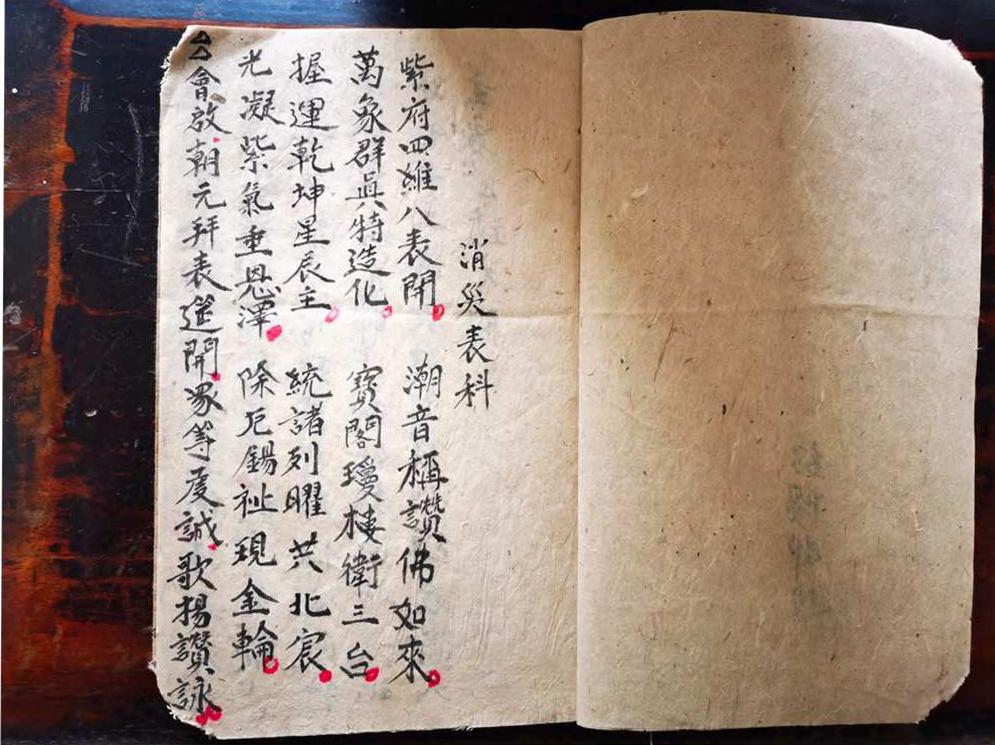 消災表科
紫府四維八表開 潮音稱讚佛如來
萬象群眞特造化 寶閣瓊樓衛三台
握運乾坤星辰主 統諸列曜共北宸
光凝紫氣垂恩澤 除厄錫祉現金輪
厶厶會啟朝元拜表筵開眾等虔誠歌揚讚詠